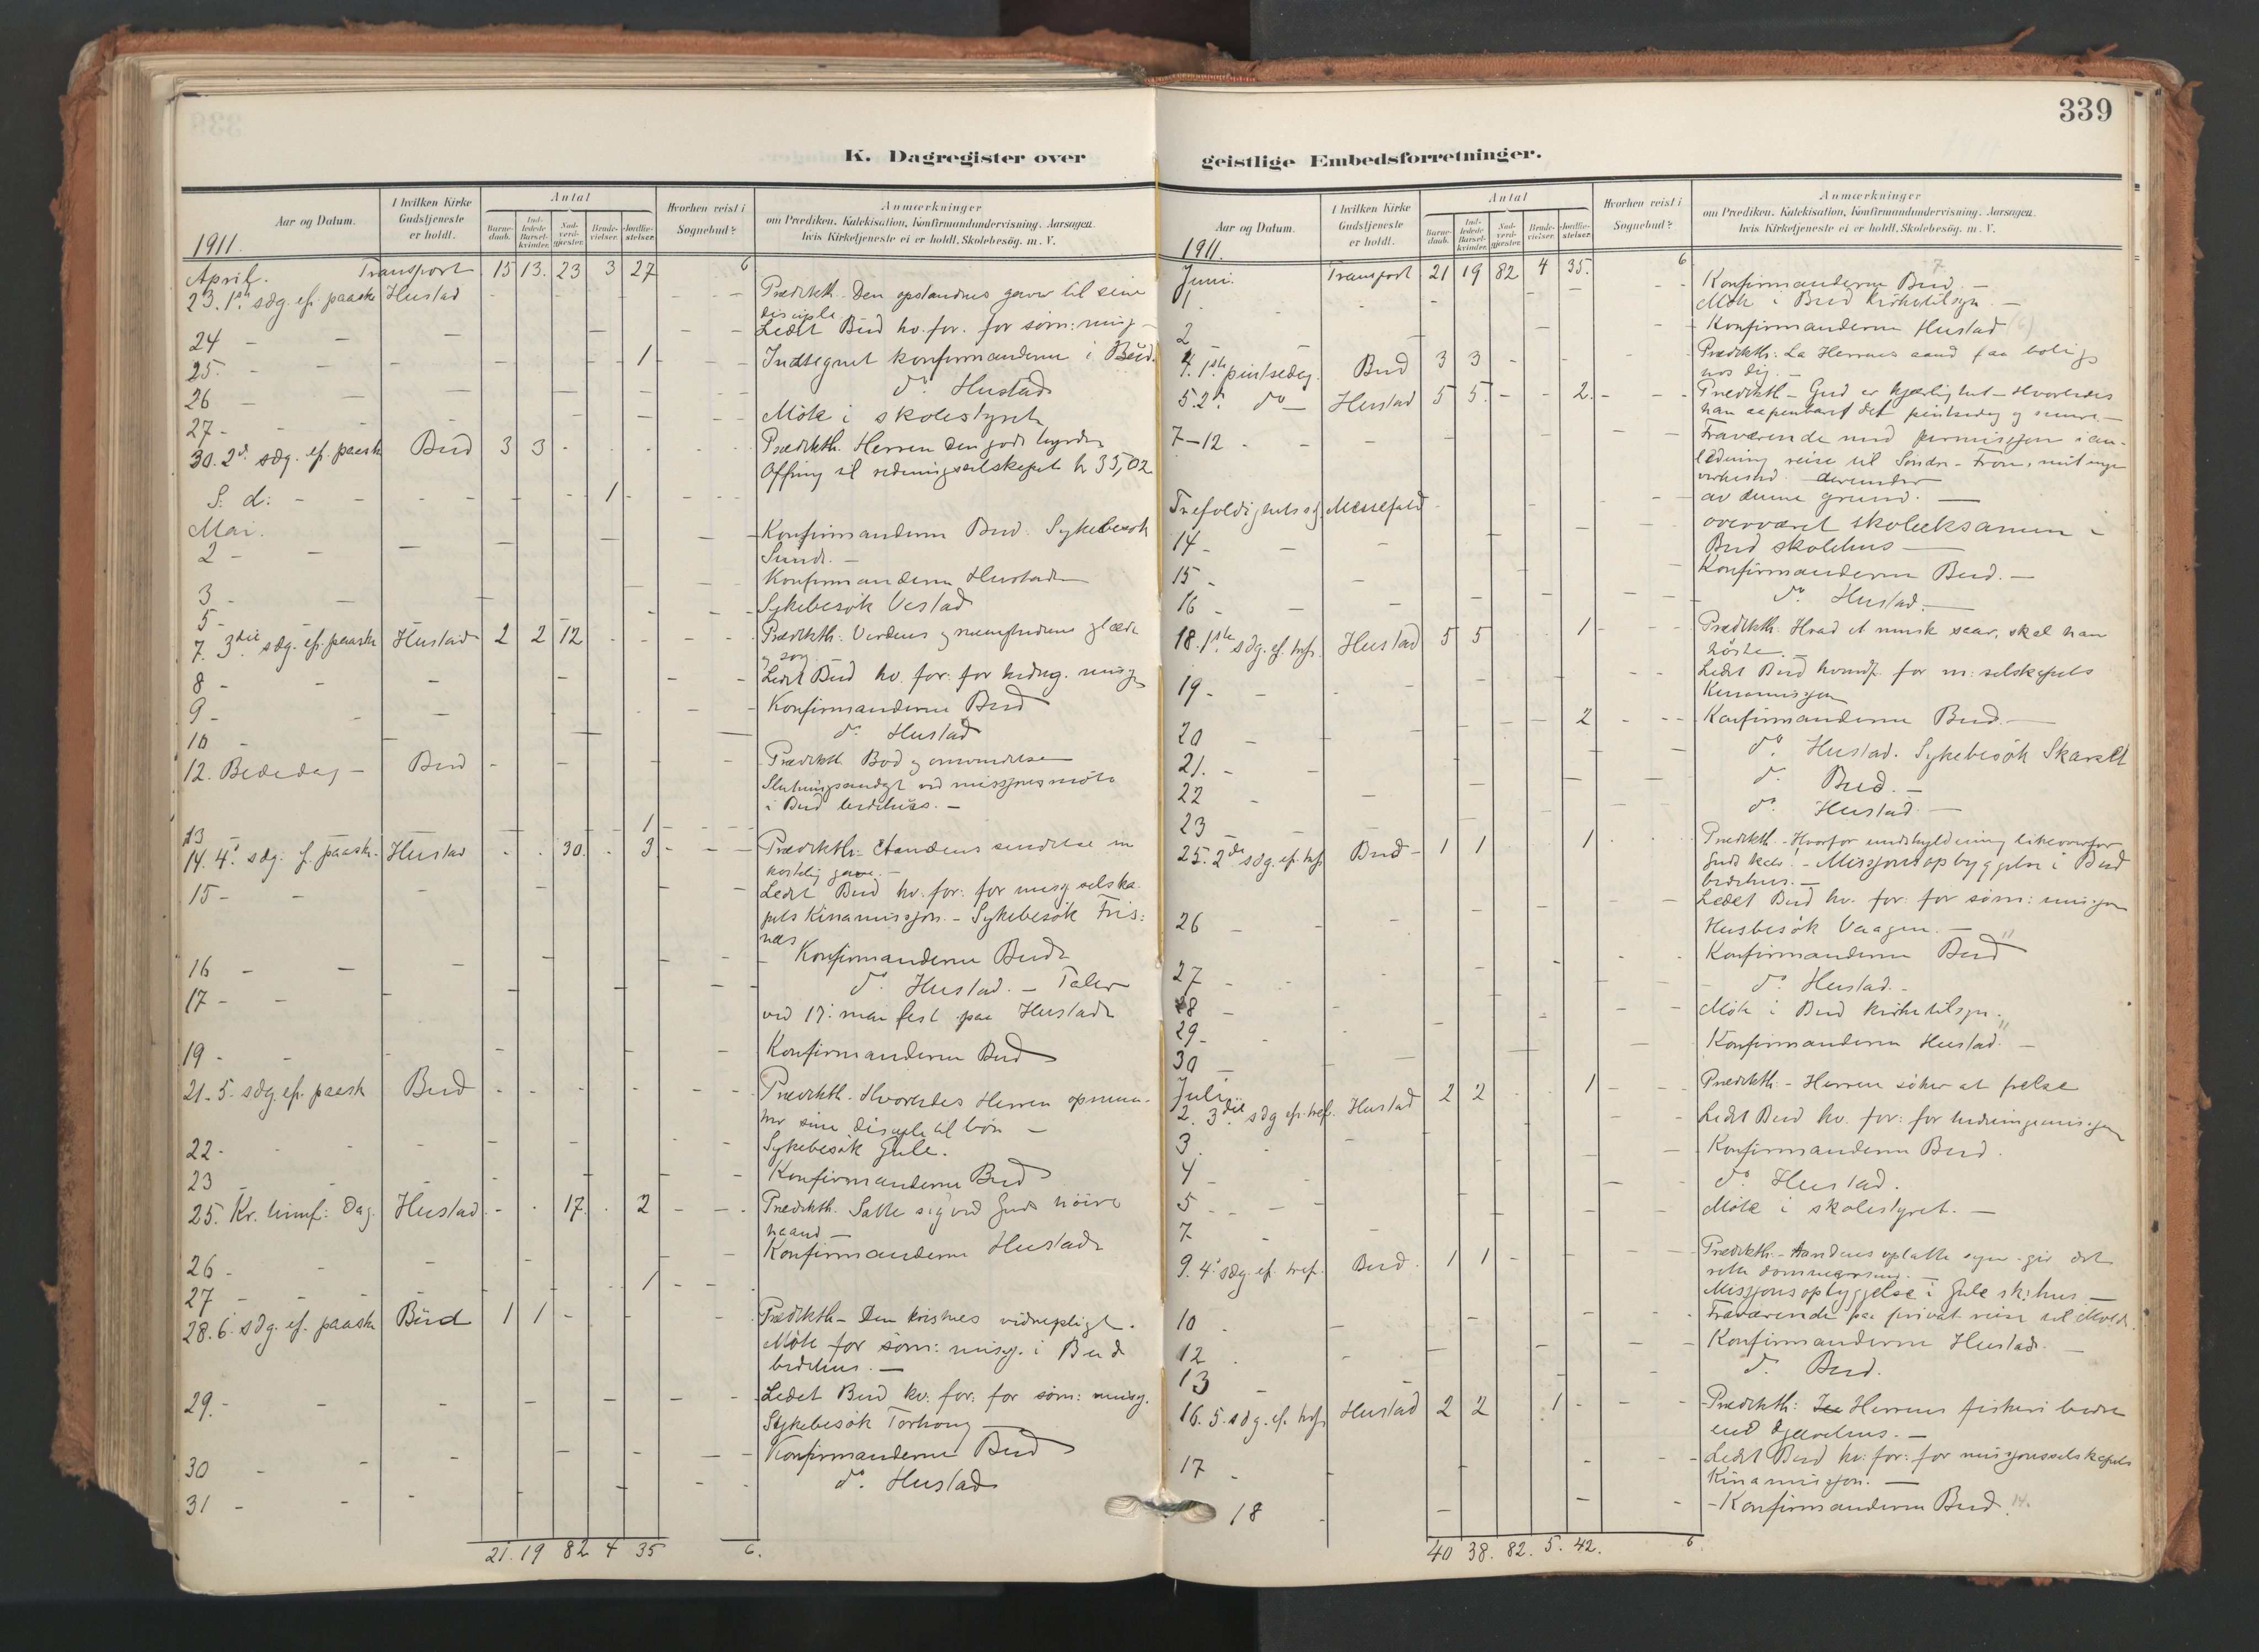 339
K. Dagregister over
Aar og Datum.
I hvilken Kirke Gudstjeneste er holdt.
Antal
Barnedaab.
Indledede Barselkvinder.
Nadverdgjester.
Brudevielser.
Jordfæstelser.
Hvorhen reist i Sognebud?
Anmærkninger
om Prædiken, Katekisation, Konfirmandundervisning. Aarsagen
hvis Kirketjeneste ei er holdt. Skolebesøg. m. V.
1911.
April. Transport 15 13. 23 3 27 6
23. 1ste sdg. ef. paaske Hustad Prædikth. Den opstandnes gaver til sine
disciple
24 - - Ledet Bud kv. for. for søm: misj -
25. - - 1 Indsegnet konfirmanderne i Bud.
26 - - do Hustad
27 - Møte i skolestyret
30. 2d. sdg. ef. paaske Bud 3 3 Prædikth. Herren den gode hyrde
Offring til redningsselskapet kr 35,02
S. d: - - 1
Mai.
2 - - Konfirmanderne Bud. Sykebesøk
Sunde. -
3 - - Konfirmanderne Hustad
5 - Sykebesøk Vestad
7. 3die sdg. ef. paaske Hustad 2 2 12 Prædikth: Verdens og menighedens glæde
og sorg
8 - - Ledet Bud kv. for: for hedng. misj
9 - - Konfirmanderne Bud
10 - do Hustad
12. Bededag - Bud Prædikth. Bod og omvendelse
Slutningsandagt ved missjonsmøte
i Bud bedehus. -
13 1
14. 4. sdg. ef. paaske. Hustad 30. 3 Prædikth: Aandens sendelse en
kostelig gave. -
15 - - Ledet Bud kv. for: for misj selska-
pets Kinamissjon. - Sykebesøk Fris:
nes
16 - - Konfirmanderne Bud
17 - - do Hustad. - Taler
ved 17: mai fest paa Hustad
19 - - Konfirmanderne Bud
21. 5. sdg. ef. paaske Bud Prædikth. - Hvorledes Herren opmun-
trer sine disciple til bøn -
22 - Sykebesøk Gule.
23 - Konfirmanderne Bud
25. Kr. himf: dag. Hustad 17. 2 Prædikth. Satte sig ved Guds høire
haand -
26 - - Konfirmanderne Hustad
27 - - 1
28. 6. sdg. ef. paaske Bud 1 1 Prædikth - Den kristnes vidnepligt.
Møte for søm: misj. i Bud
bedehus. -
29. - - Ledet Bud kv: for: for søm: misj.
Sykebesøk Tornong
30 - - Konfirmanderne Bud
31 - - do Hustad
21. 19 82 4 35 6.
geistlige Embedsforretninger.
Aar og Datum.
I hvilken Kirke Gudstjeneste er holdt.
Antal
Barnedaab.
Indledede Barselkvinder.
Nadverdgjester.
Brudevielser.
Jordfæstelser.
Hvorhen reist i Sognebud?
Anmærkninger
om Prædiken, Katekisation, Konfirmandundervisning. Aarsagen
hvis Kirketjeneste ei er holdt. Skolebesøg. m. V.
1911.
Juni. Transport 21 19 82 4 35. 6
7
1 - Konfirmanderne Bud. -
Møte i Bud kirketilsyn. -
2 - - Konfirmanderne Hustad (6)
4. 1ste pintsedag. Bud 3 3 Prædikth: La Herrens aand faa bolig
hos dig. -
5. 2d. do - Hustad 5 5. 2. Prædikth - Gud er kjærlighet - Hvorledes
han aapenbaret det pintsedag og senere -
7-12 - - Fraværende med permissjon i an-
ledning reise til Søndre-Fron, mit nye
virkested. derunder
Trefoldighets sdg. Messefald - av denne grund. -
14 - - overværet skoleeksamen i
Bud skolehus -
15 - Konfirmanderne Bud. -
16 - - do Hustad. -
18. 1ste sdg. ef. tref. Hustad 5 5 1 Prædikth. Hvad et menneske saar, skal han
høste. -
19 - - Ledet Bud kvindf. for m: selskapets
Kinamissjon
20 - 2 Konfirmanderne Bud. -
21. - - do Hustad. Sykebesøk Skarset
22 - do Bud. -
23 - do Hustad. -
25. 2den sdg. ef. tref Bud - 1 1 1 Prædikth. - Hvorfor undskyldning likeoverfor
Guds kald. - Missjonsopbyggelse i Bud
bedehus. -
26 - - Ledet Bud kv. for: for søm: misjon
Husbesøk Vaagen. -
27 - - Konfirmanderne Bud "
28 - do Hustad. -
29 - Møte i Bud kirketilsyn.
30 - Konfirmanderne Hustad. " -
Juli.
2. 3die sdg ef. tref. Hustad 2 2 1 Prædikth. - Herren søker at frelse
3. - Ledet Bud kv. for: for hedningemisjon
4 - Konfirmanderne Bud.
5 - - do Hustad.
7 - Møte i skolestyret. -
9. 4. sdg. ef. tref. Bud. 1 1 Prædikth. - Aandens oplatte øyne gir det
rette dommergrund. -
Missjonsopbyggelse i Gule sk:hus -
10 - Fraværende paa privat reise til Molde.
12 - Konfirmanderne Hustad. -
13 - do Bud.
16. 5. sdg. ef. tref Hustad 2 2 1 Prædikth: Herrens fiskeri bedre
end djævelens. -
17 - Ledet Bud kv: for: for misjonsselskapets
Kinamissjon. -
18 - - Konfirmanderne Bud. 14.
40 38. 82. 5. 42. 6